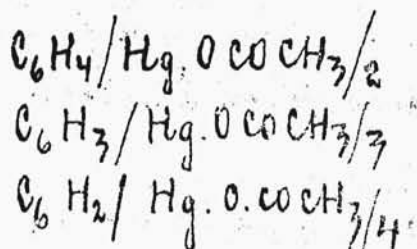 C₆H₄/Hg.OCOCH₃/₂
C₆H₃/Hg.OCOCH₃/₃
C₆H₂/Hg.O.COCH₃/₄